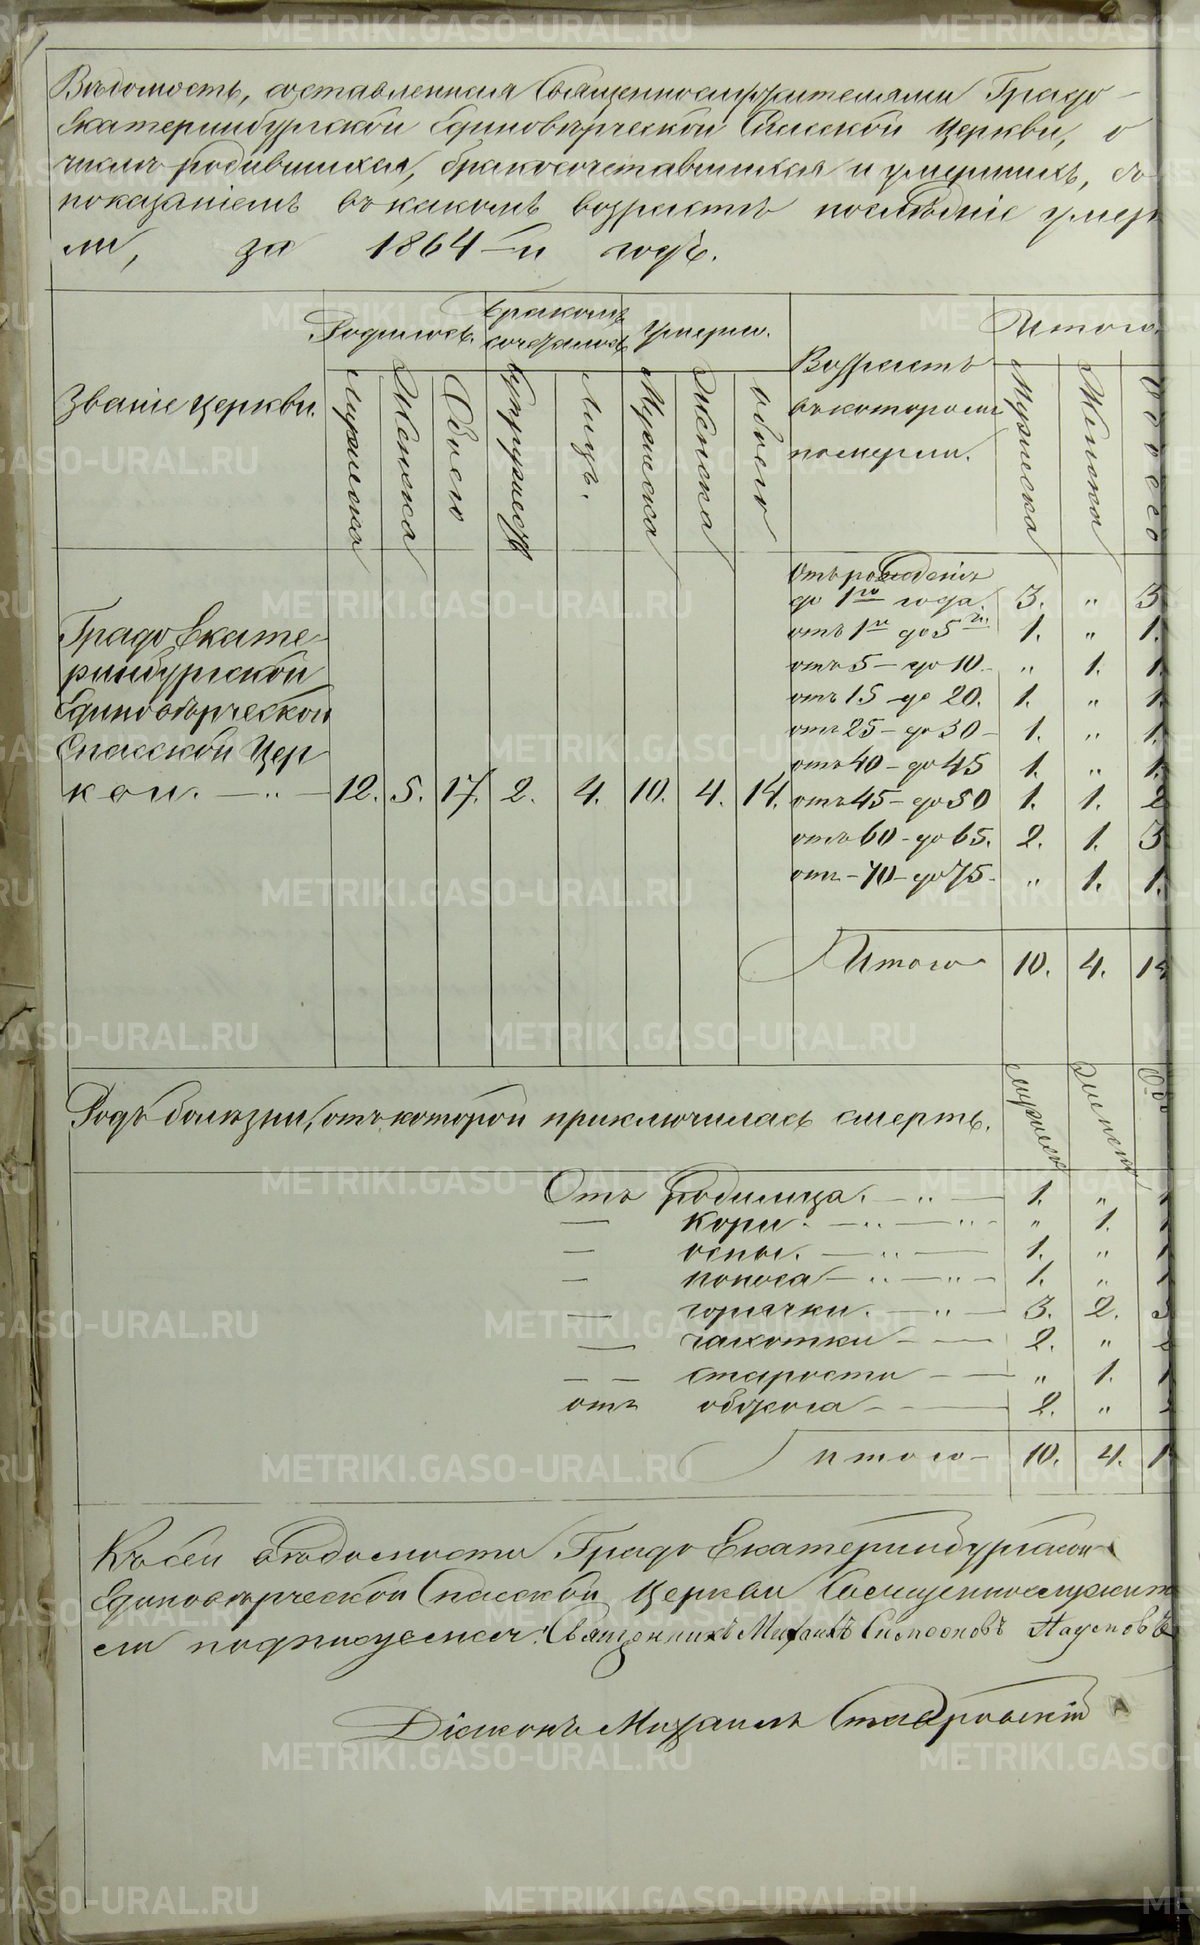 Вѣдомость, составленная Священнослужителями Градо-
Екатеринбургской Единовѣрческой Спасской Церкви, о
числѣ родившихся, бракосочетавшихся и умершихъ, съ
показаніемъ въ какомъ возрастѣ послѣдніе умер
ли, за 1864-й годъ.
Званіе церкви.
Родилось.
Бракомъ сочеталось
Умерло.
Возрастъ
въ которомъ
померли.
Итого
Мужеска
Женска
Обоего
Супружествъ
Лицъ.
Мужеска
Женска
Обоего
Мужеска
Женска
Обоего
Градо Екате-
ринбургской
Единовѣрческой
Спасской Цер
кви. — „ — 12. 5. 17. 2. 4. 10. 4. 14.
Отъ рожденія
до 1го года. 3. „ 3
отъ 1го до 5ти. 1. „ 1.
отъ 5 — до 10. „ 1. 1.
отъ 15 — до 20. 1. „ 1.
отъ 25 — до 30 — 1. „ 1.
отъ 40 — до 45 1. „ 1.
отъ 45 — до 50 1. 1. 2
отъ 60 — до 65. 2. 1. 3
отъ — 70 — до 75 — „ 1. 1.
Итого 10. 4. 14
Родъ болѣзни, отъ которой приключилась смерть.
Мужеска
Женска
Обо
Отъ родимца. — „ — 1. „ 1
— кори. — „ — „ — „ 1. 1
— оспы. — „ — 1. „ 1
— поноса — „ — „ — 1. „ 1
— горячки. — „ — 3. 2. 5
— чахотки — — 2. „ 2
— — старости — — „ 1. 1
отъ обжога — — 2. „ 2
Итого — 10. 4. 1
Къ сей вѣдомости Градо Екатеринбургской
Единовѣрческой Спасской Церкви Священнослужит
ели подписуемся: Священникъ Михаилъ Симеоновъ Наумовъ
Діаконъ Михаилъ Ставровскій
METRIKI.GASO-URAL.RU